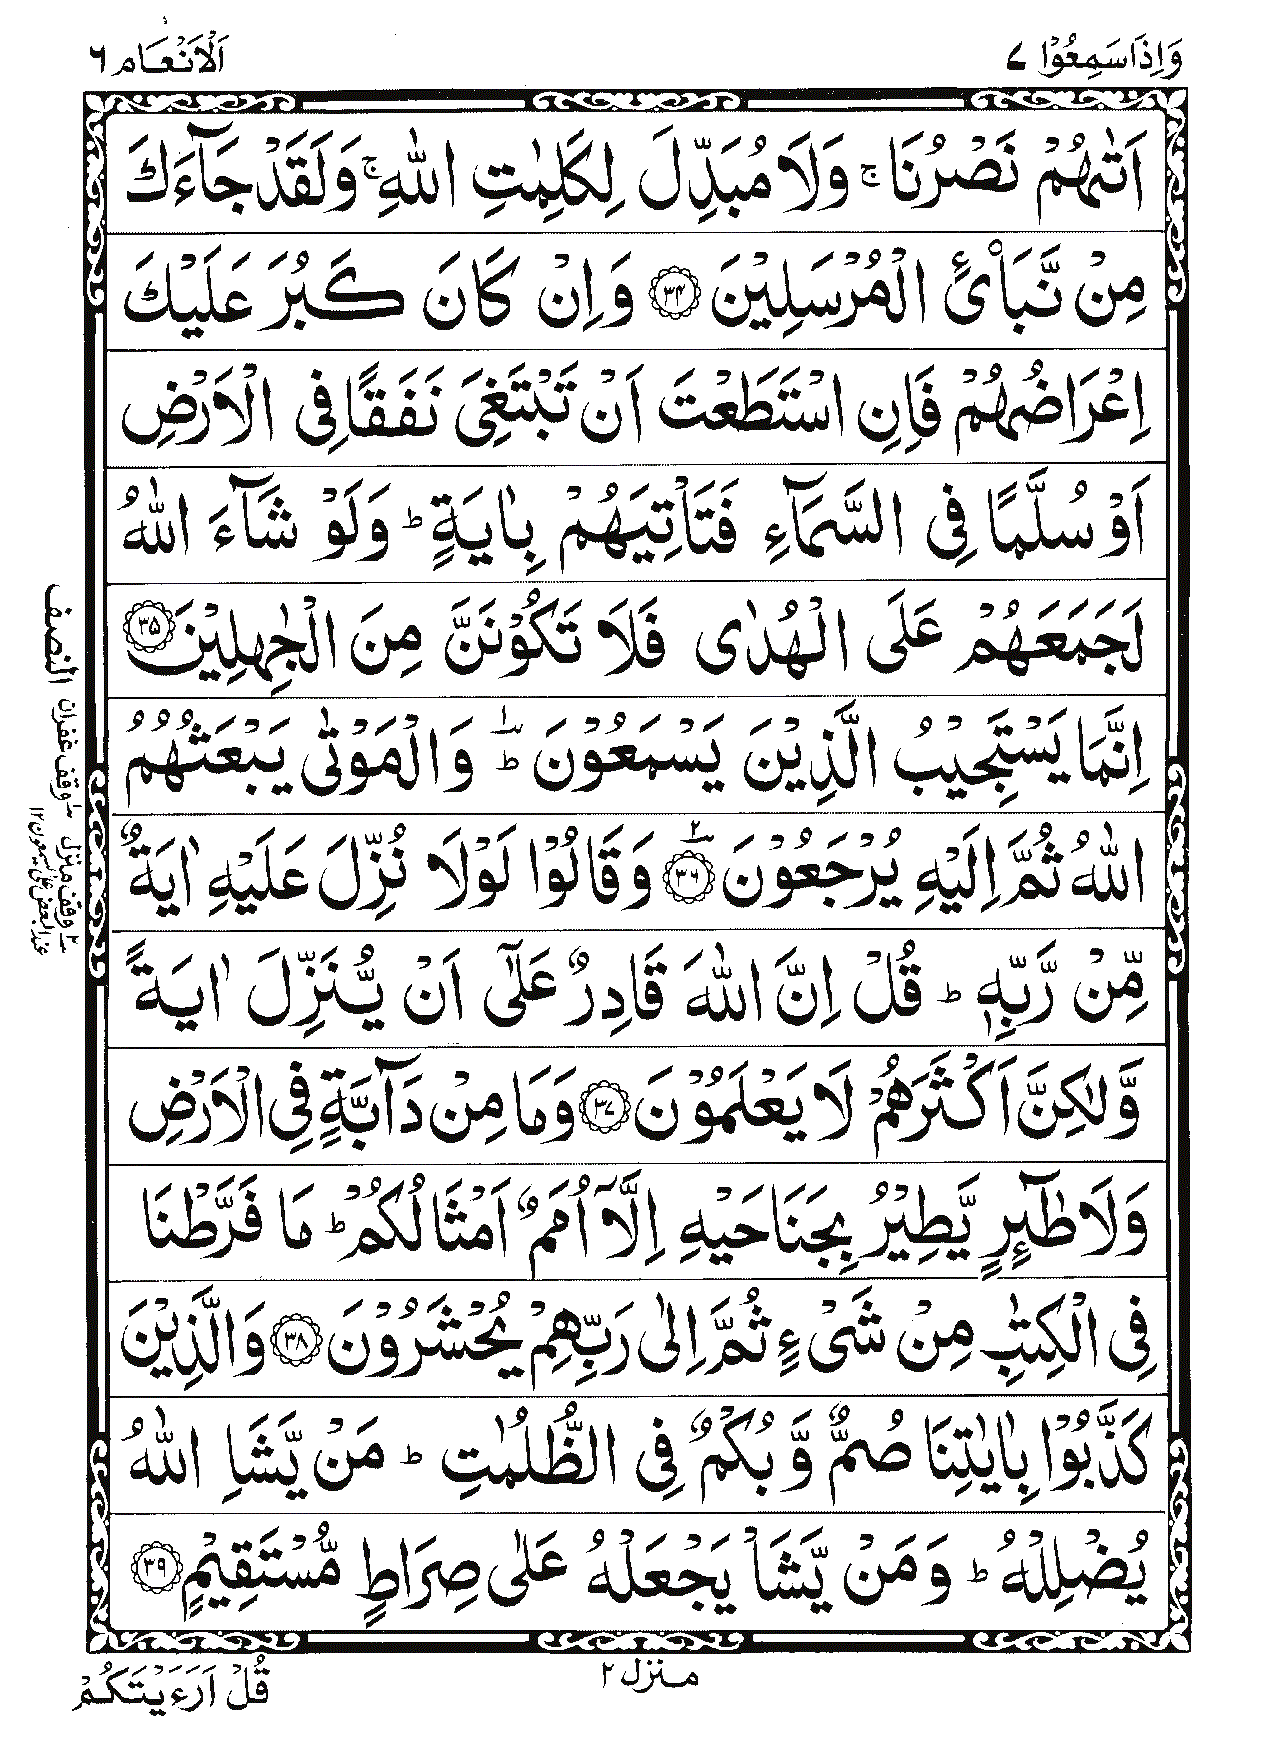 وَاِذَا سَمِعُوْا ٧
اَلْاَنْعَام ٦
اَتٰىهُمْ نَصْرُنَا ۚ وَلَا مُبَدِّلَ لِكَلِمٰتِ اللّٰهِ ۚ وَلَقَدْ جَآءَكَ
مِنْ نَّبَاِئ الْمُرْسَلِيْنَ ﴿۳۴﴾ وَاِنْ كَانَ كَبُرَ عَلَيْكَ
اِعْرَاضُهُمْ فَاِنِ اسْتَطَعْتَ اَنْ تَبْتَغِىَ نَفَقًا فِى الْاَرْضِ
اَوْ سُلَّمًا فِى السَّمَآءِ فَتَاْتِيَهُمْ بِاٰيَةٍ ؕ وَلَوْ شَآءَ اللّٰهُ
لَجَمَعَهُمْ عَلَى الْهُدٰى فَلَا تَكُوْنَنَّ مِنَ الْجٰهِلِيْنَ ﴿۳۵﴾
اِنَّمَا يَسْتَجِيْبُ الَّذِيْنَ يَسْمَعُوْنَ ؕ وَالْمَوْتٰى يَبْعَثُهُمُ
اللّٰهُ ثُمَّ اِلَيْهِ يُرْجَعُوْنَ ﴿۳۶﴾ وَقَالُوْا لَوْلَا نُزِّلَ عَلَيْهِ اٰيَةٌ
مِّنْ رَّبِّهٖ ؕ قُلْ اِنَّ اللّٰهَ قَادِرٌ عَلٰٓى اَنْ يُّنَزِّلَ اٰيَةً
وَّلٰكِنَّ اَكْثَرَهُمْ لَا يَعْلَمُوْنَ ﴿۳۷﴾ وَمَا مِنْ دَآبَّةٍ فِى الْاَرْضِ
وَلَا طٰٓئِرٍ يَّطِيْرُ بِجَنَاحَيْهِ اِلَّاۤ اُمَمٌ اَمْثَالُكُمْ ؕ مَا فَرَّطْنَا
فِى الْكِتٰبِ مِنْ شَىْءٍ ثُمَّ اِلٰى رَبِّهِمْ يُحْشَرُوْنَ ﴿۳۸﴾ وَالَّذِيْنَ
كَذَّبُوْا بِاٰيٰتِنَا صُمٌّ وَّبُكْمٌ فِى الظُّلُمٰتِ ؕ مَنْ يَّشَاِ اللّٰهُ
يُضْلِلْهُ ؕ وَمَنْ يَّشَاْ يَجْعَلْهُ عَلٰى صِرَاطٍ مُّسْتَقِيْمٍ ﴿۳۹﴾
النصف
وقف غفران
وقف منزل
عند البعض على يسمعون ١٢
منزل ٢
قُلْ اَرَءَيْتَكُمْ